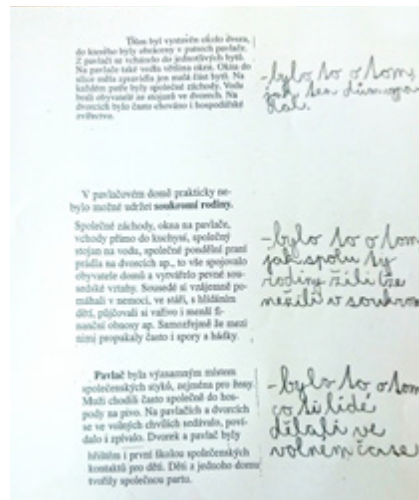 Dům byl vystavěn okolo dvora,
do kterého byly obráceny v patrech pavlače.
Z pavlačí se vcházelo do jednotlivých bytů.
Na pavlače také vedla většina oken. Okna do
ulice měla zpravidla jen malá část bytů. Na
každém patře byly společné záchody. Vodu
brali obyvatelé ze stojanů ve dvorech. Na
dvorcích bylo často chováno i hospodářské
zvířectvo.
-bylo to o tom,
jak ten dům
V pavlačovém domě prakticky ne-
bylo možné udržet soukromí rodiny.
Společné záchody, okna na pavlače,
vchody přímo do kuchyně, společný
stojan na vodu, společné pondělní praní
prádla na dvorcích ap., to vše spojovalo
obyvatele domů a vytvářelo pevné sou-
sedské vztahy. Sousedé si vzájemně po-
máhali v nemoci, ve stáří, s hlídáním
dětí, půjčovali si vařivo i menší fi-
nanční obnosy ap. Samozřejmě že mezi
nimi propukaly často i spory a hádky.
-bylo to o tom
jak spolu ty
rodiny žili že
nežili v soukrom
Pavlač byla významným místem
společenských styků, zejména pro ženy.
Muži chodili často společně do hos-
pody na pivo. Na pavlačích a dvorcích
se ve volných chvílích sedávalo, poví-
dalo i zpívalo. Dvorek a pavlač byly
hřištěm i první školou společenských
kontaktů pro děti. Děti z jednoho domu
tvořily společnou partu.
-bylo to o tom
co ti lidé
dělali ve
volném čase